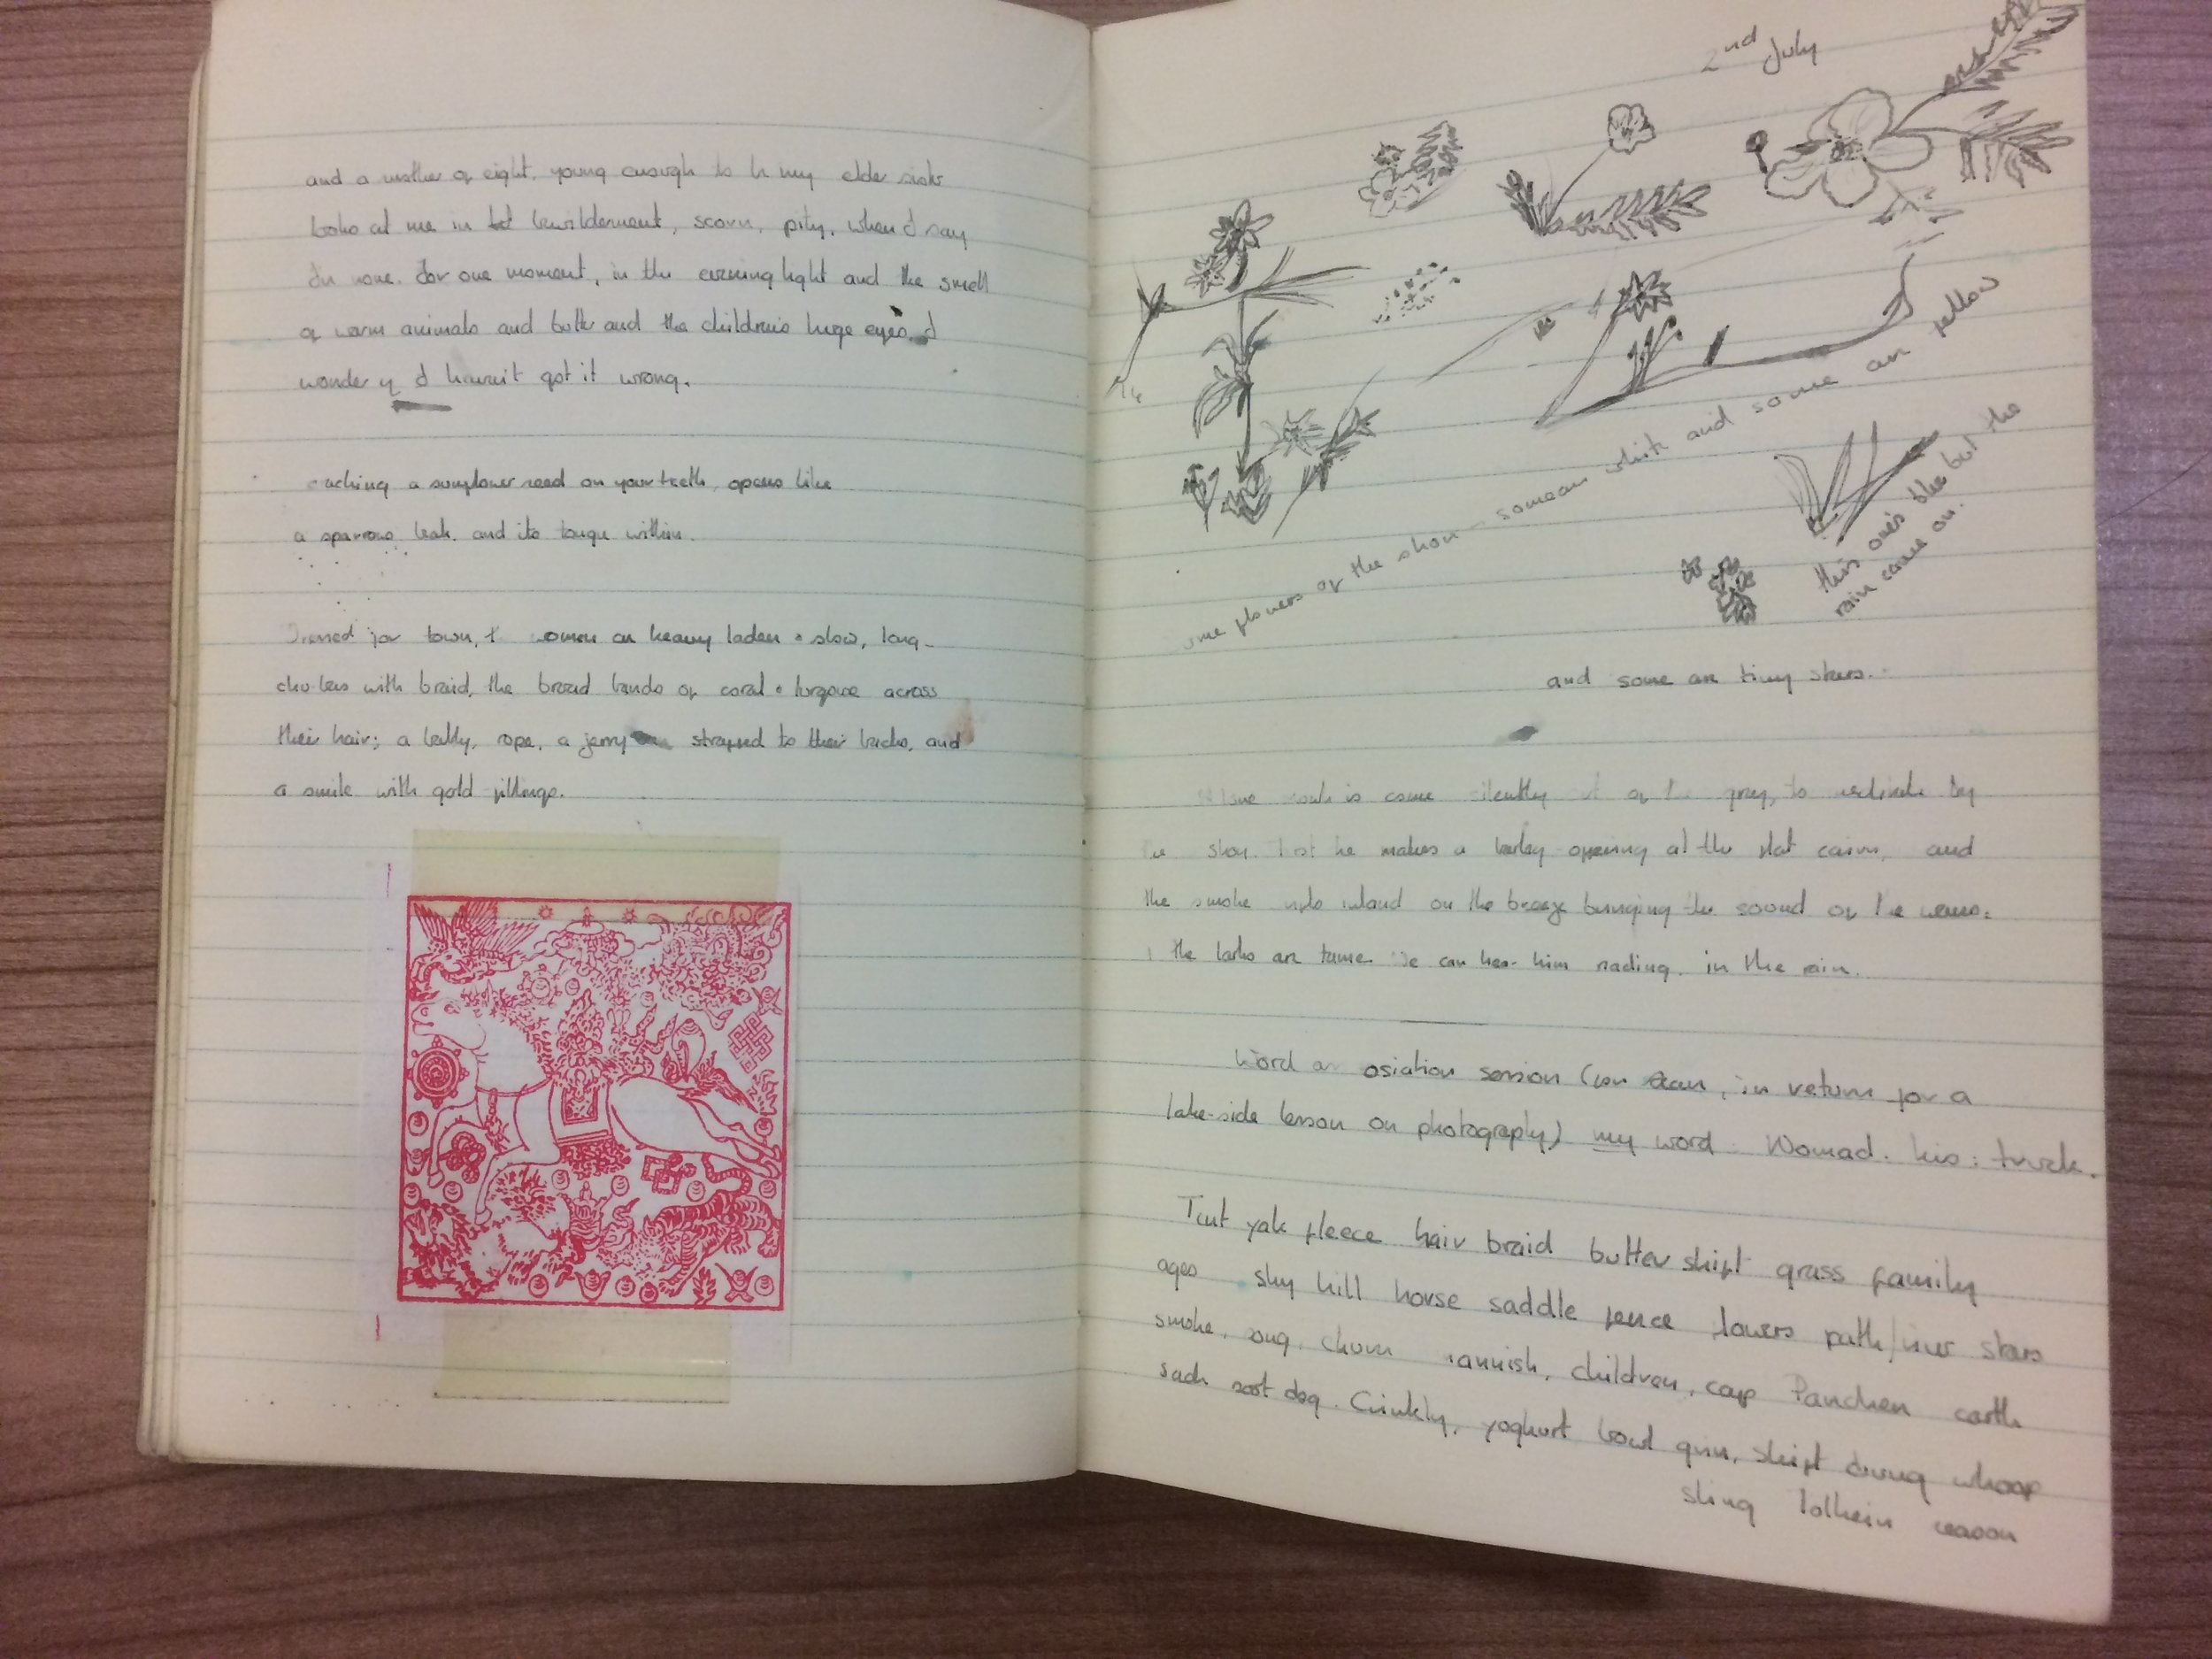 and a mother of eight, young enough to be my elder sister
looks at me in bewilderment, scorn, pity, when I say
I've none. For one moment, in the evening light and the smell
of warm animals and butter and the children's huge eyes, I
wonder if I haven't got it wrong.
a sunflower seed on your teeth, opens like
a sparrows beak. and its tongue within.
for town, women are heavy laden & slow, long
with braid, the broad bands of coral & turqoise across
their hair; a belly, rope, a jerry can strapped to their backs, and
a smile with gold fillings.
2nd July
flowers of the shore - some are white and some are yellow
this one's blue but the
rain came on.
and some are tiny stars.
is come silently of grey, to by
shore. First he makes a barley opening at the flat cairn, and
the smoke inland on the breeze bringing the sound of the waves.
the larks are tame. We can hear him reading. in the rain.
Word osiation session (con Sean, in return for a
lake-side lesson on photography) my word: Nomad. his: truck.
Tent yak fleece hair braid butter shift grass family
ages sky hill horse saddle fence flowers path/river stars
smoke, song, churn, children, cap Panchen earth
sack soot dog. Crinkly, yoghurt bowl grin, shift dung whoop
sling season